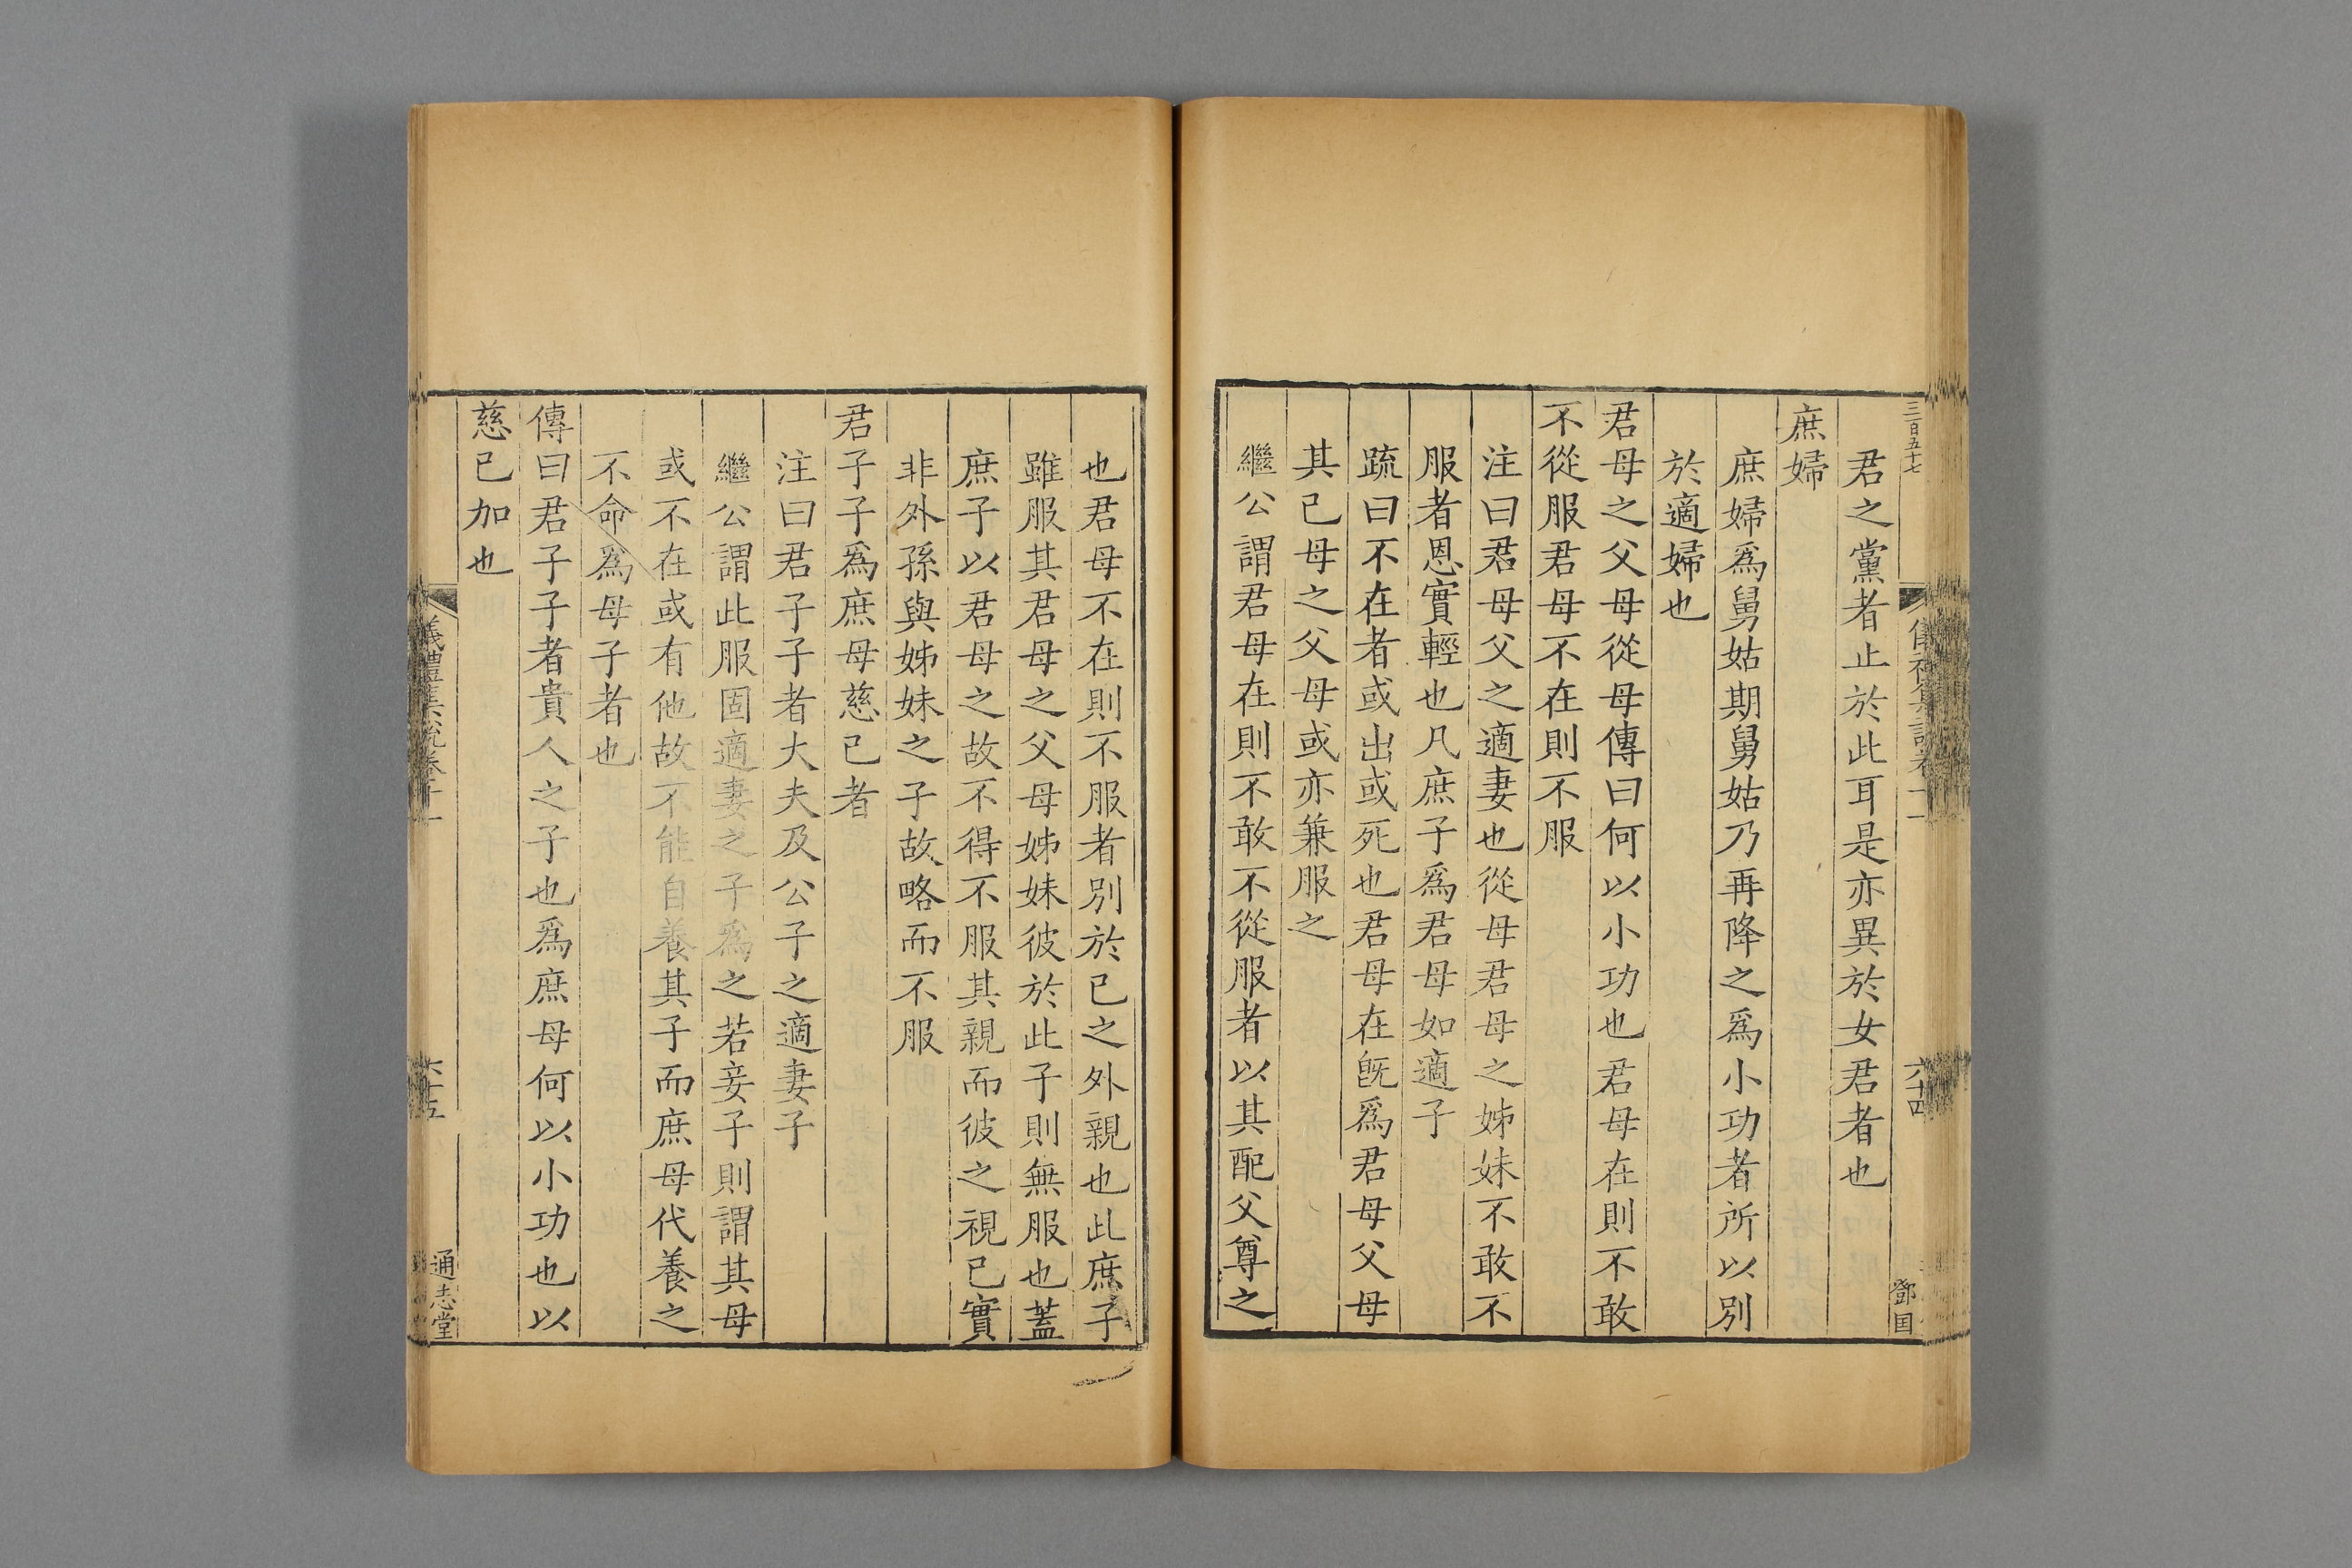 三百五十七
六十四
鄧国
君之黨者止於此耳是亦異於女君者也
庶婦
庶婦爲舅姑期舅姑乃再降之爲小功者所以別
於適婦也
君母之父母從母傳曰何以小功也君母在則不敢
不從服君母不在則不服
注曰君母父之適妻也從母君母之姊妹不敢不
服者恩實輕也凡庶子爲君母如適子
疏曰不在者或出或死也君母在旣爲君母父母
其已母之父母或亦兼服之
繼公謂君母在則不敢不從服者以其配父尊之
也君母不在則不服者別於已之外親也此庶子
雖服其君母之父母姊妹彼於此子則無服也蓋
庶子以君母之故不得不服其親而彼之視已實
非外孫與姊妹之子故略而不服
君子子爲庶母慈已者
注曰君子子者大夫及公子之適妻子
繼公謂此服固適妻之子爲之若妾子則謂其母
或不在或有他故不能自養其子而庶母代養之
不命爲母子者也
傳曰君子子者貴人之子也爲庶母何以小功也以
慈已加也
儀禮集說卷十一
六十五
通志堂